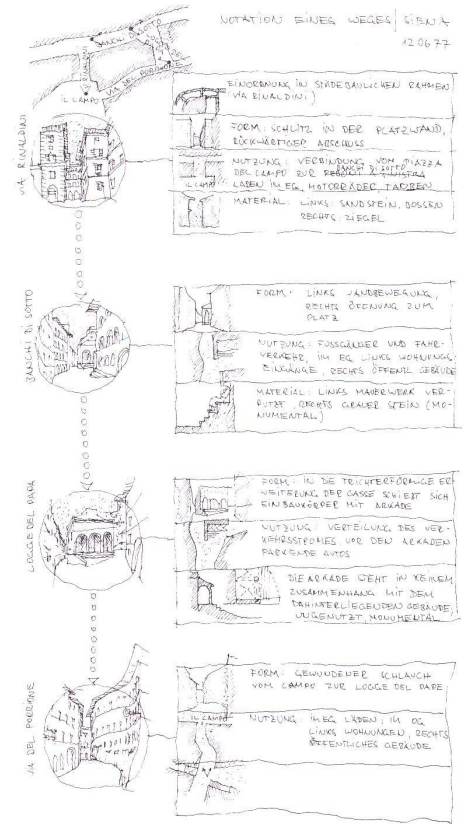 NOTATION EINES WEGES | SIENA
12.06.77
BANCHI DI SOTTO
VIA DEL PORRIONE
IL CAMPO
VIA RINALDINI
EINORDNUNG IN STÄDTEBAULICHEN RAHMEN
(VIA RINALDINI)
FORM: SCHLITZ IN DER PLATZWAND,
RÜCKWÄRTIGER ABSCHLUSS
NUTZUNG: VERBINDUNG VOM PIAZZA
DEL CAMPO ZUR BANCHI DI SOTTO
IL CAMPO
LÄDEN IM EG, MOTORRÄDER, TAUBEN
MATERIAL: LINKS: SANDSTEIN, BOSSEN
RECHTS: ZIEGEL
BANCHI DI SOTTO
FORM: LINKS WANDBEWEGUNG,
RECHTS ÖFFNUNG ZUM
PLATZ
NUTZUNG: FUSSGÄNGER UND FAHR-
VERKEHR, IM EG LINKS WOHNUNGS-
EINGÄNGE, RECHTS ÖFFENTL GEBÄUDE
MATERIAL: LINKS MAUERWERK VER-
PUTZT RECHTS GRAUER STEIN (MO-
NUMENTAL)
LOGGE DEL PAPA
FORM: IN DIE TRICHTERFÖRMIGE ER
WEITERUNG DER GASSE SCHIEBT SICH
EIN BAUKÖRPER MIT ARKADE
NUTZUNG: VERTEILUNG DES VER-
KEHRSSTROMES, VOR DEN ARKADEN
PARKENDE AUTOS
DIE ARKADE STEHT IN KEINEM
ZUSAMMENHANG MIT DEM
DAHINTERLIEGENDEN GEBÄUDE,
UNGENUTZT, MONUMENTAL
VIA DEL PORRIONE
FORM: GEWUNDENER SCHLAUCH
VOM CAMPO ZUR LOGGE DEL PAPE
IL CAMPO
NUTZUNG: IM EG LÄDEN, IM OG
LINKS WOHNUNGEN, RECHTS
ÖFFENTLICHES GEBÄUDE